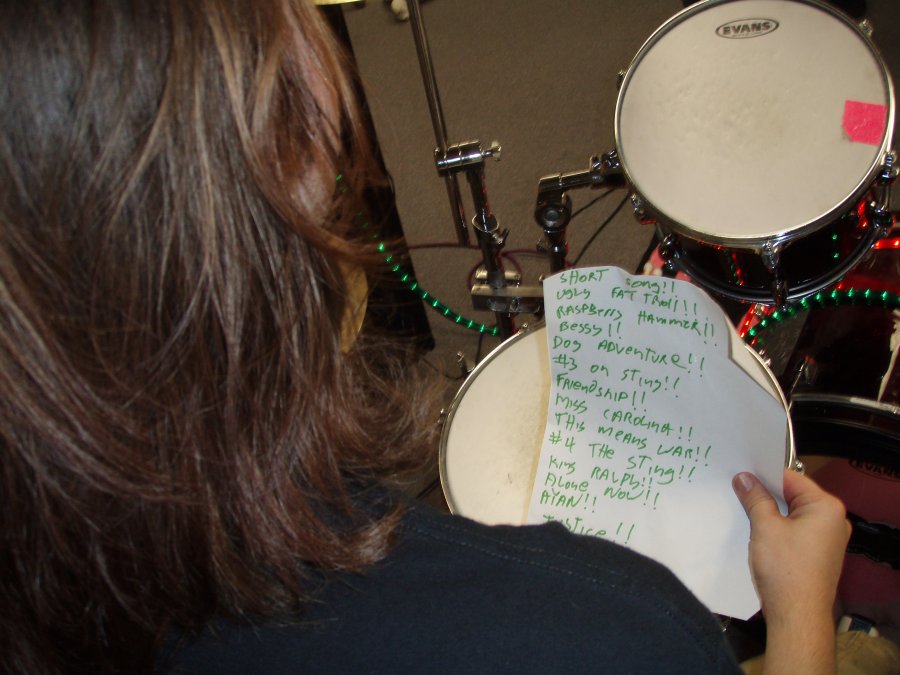 EVANS
SHORT SONG!!
UGLY FAT TROLL!!
RASPBERRY HAMMER!!
BESSY!!
DOG ADVENTURE!!
#3 ON STING!!
FRIENDSHIP!!
MISS CAROLINA!!
THIS MEANS WAR!!
#4 THE STING!!
KING RALPH!!
ALONE NOW!!
AYAN!!
JUSTICE!!
EVANS